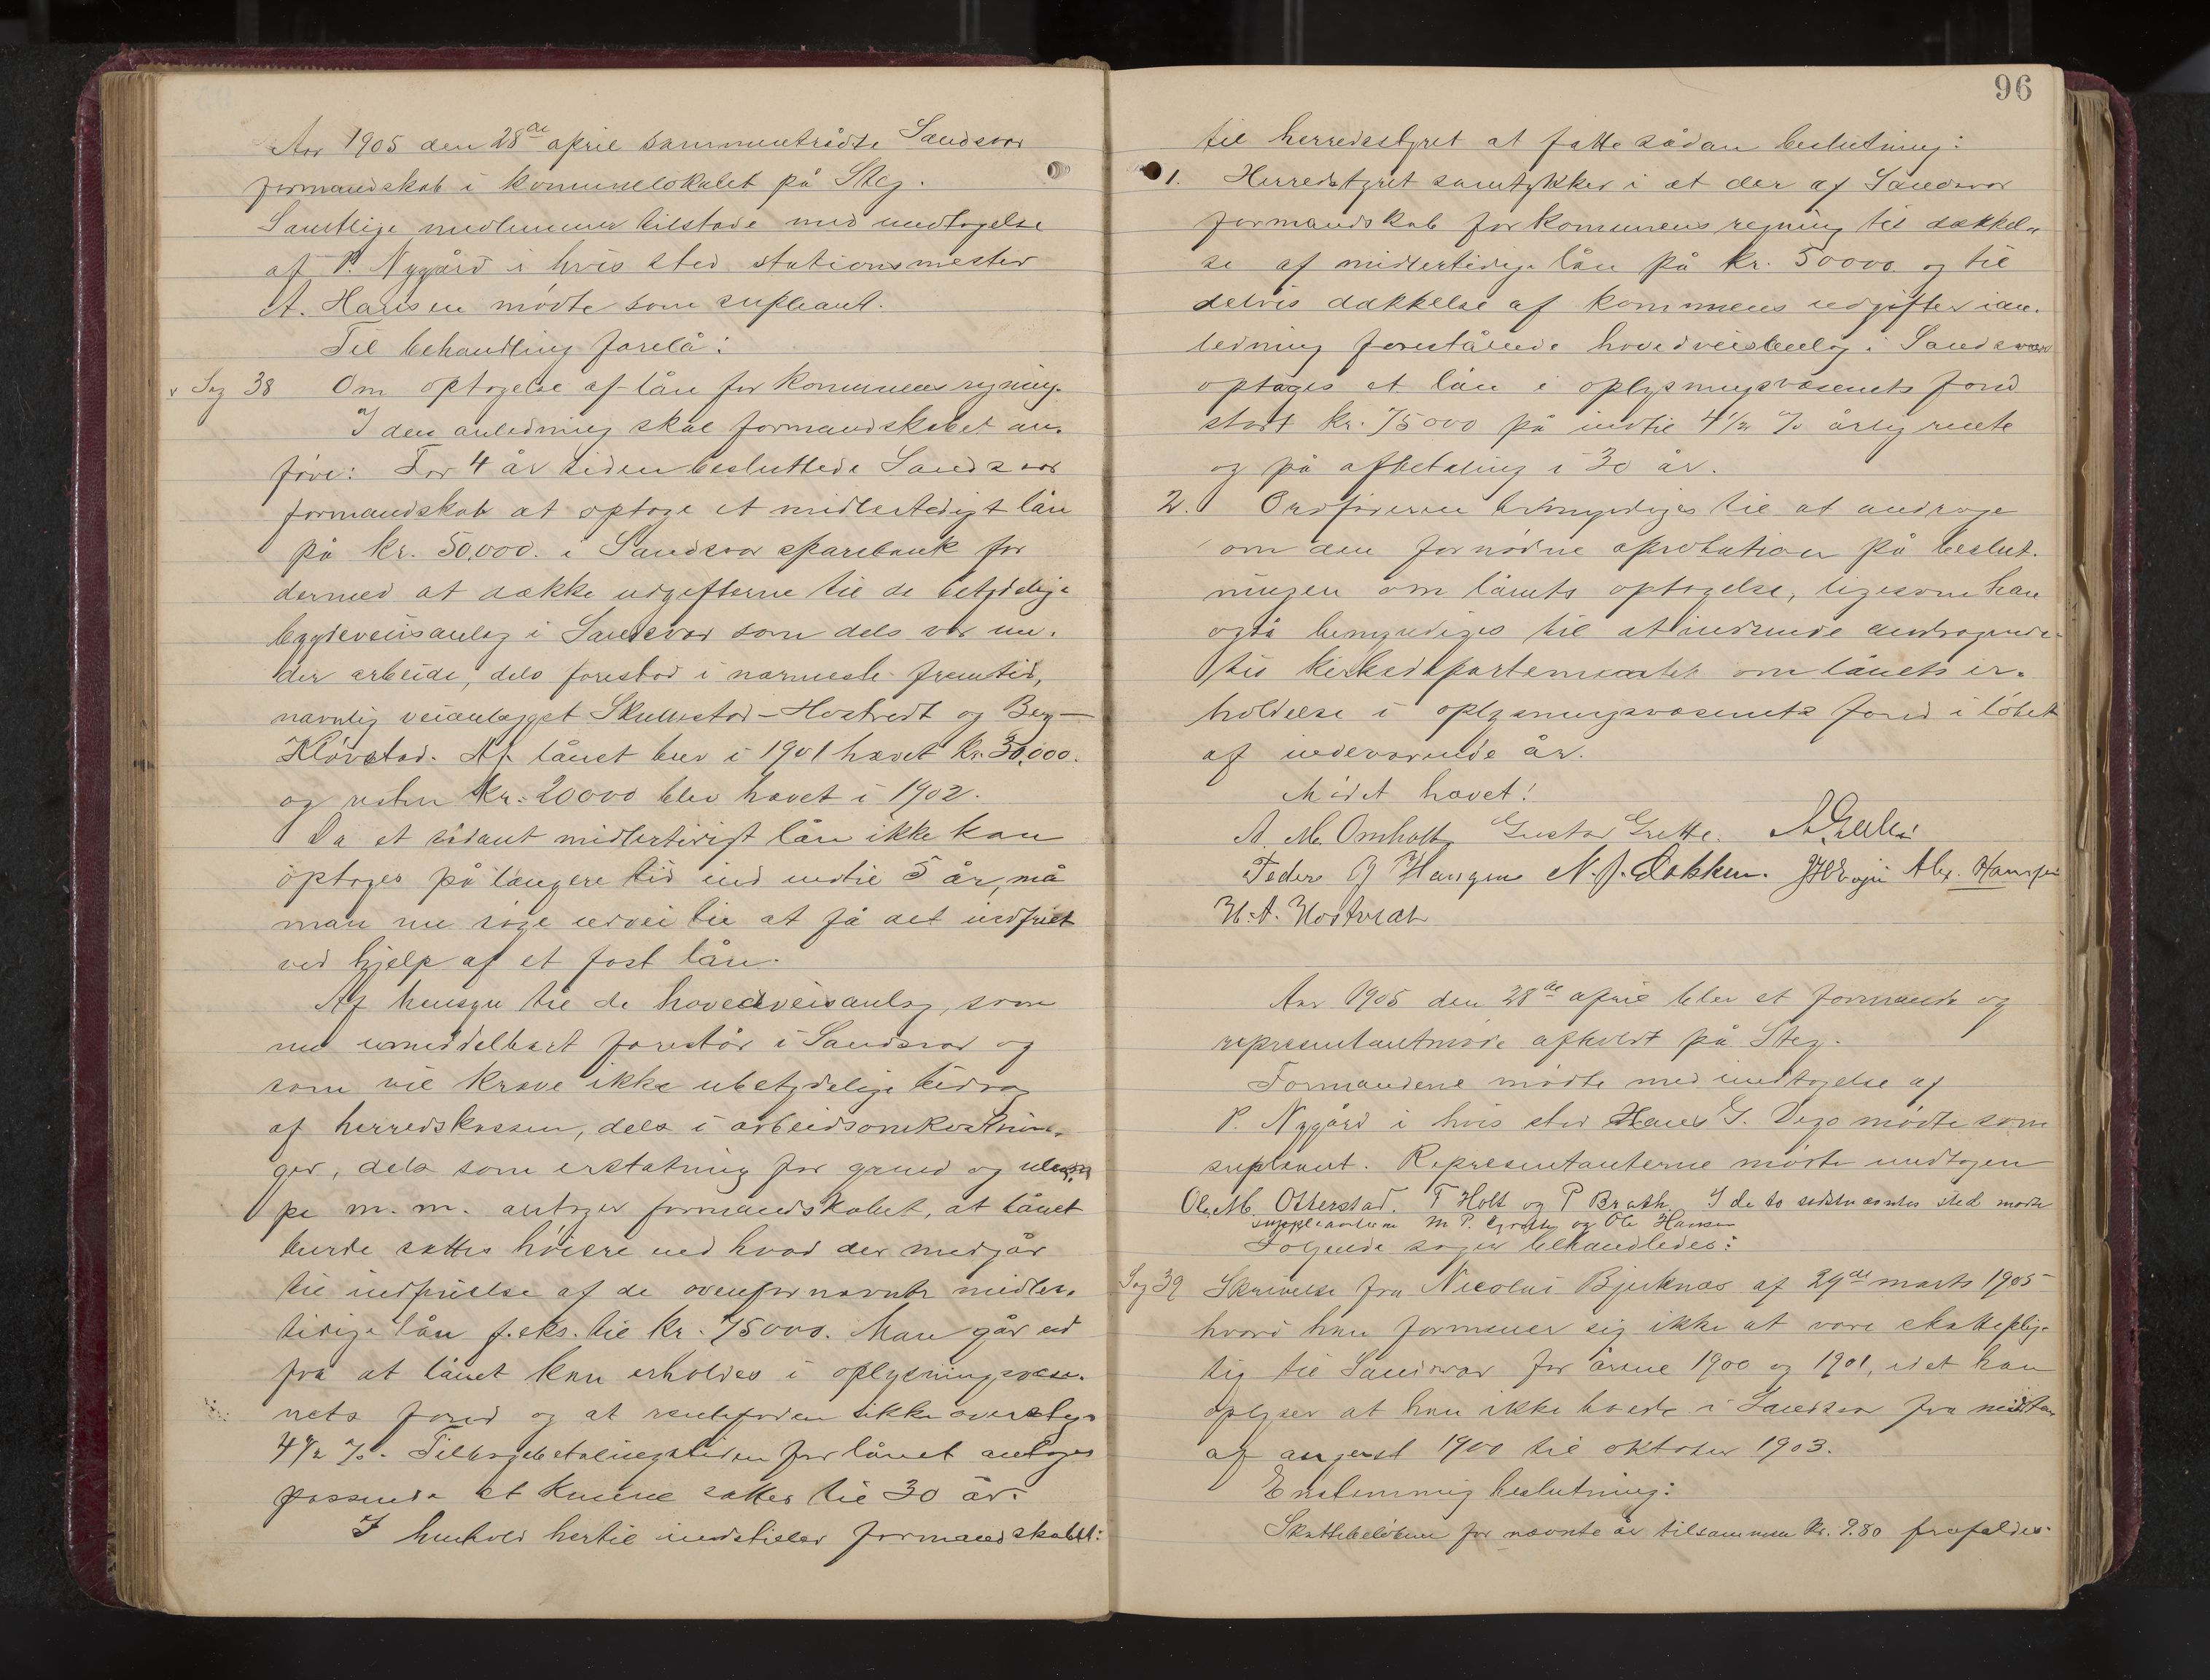 Aar 1905 den 28de april sammentrådte Sandsvær
formandskab i komunelokalet på Steg.
Samtlige medlemmer tilstede med undtagelse
af P. Nygård i hvis sted stationsmester
A. Hansen mödte som supleant.
Til behandling forelå:
Sag 38 Om optagelse af lån for kommunens regning.
I den anledning skal formandskabet an-
före: For 4 år siden besluttede Sandsvær
formandskab at optage et midlertidigt lån
på kr. 50,000. i Sandsvær sparebank for
dermed at dække udgifterne til de betydelige
bygdeveisanlæg i Sandsvær som dels var un-
der arbeide, dels forestod i nærmeste fremtid,
navnlig veianlægget Skullestad-Hostvedt og Beg-
Klövstad. Af lånet blev i 1901 hævet kr. 30,000.
og resten kr. 20000 blev hævet i 1902.
Da et sådant midlertidigt lån ikke kan
optages på længere tid end indtil 5 år, må
man nu söge udvei til at få det indfriet
ved hjelp af et fast lån.
Af hensyn til de hovedveisanlæg, som
nu umiddelbart forestår i Sandsvær og
som vil kræve ikke ubetydelige bidrag
af herredskassen, dels i arbeidsomkostnin-
ger, dels som erstatning for grund og ulem-
pe m. m. antager formandskabet, at lånet
burde sættes höiere end hvad der medgår
til indfrielse af de ovenfor nævnte midler-
tidige lån f.eks. til kr. 75000. Man går ud
fra at lånet kan erholdes i oplysningsvæse-
nets fond og at rentefoden ikke overstiger
4 1/2 %. Tilbagebetalingstiden for lånet antages
passende at kunne sættes til 30 år.
I henhold hertil indstiller formandskabet:
96
til herredsstyret at fatte sådan beslutning:
1. Herredstyret samtykker i at der af Sandsvær
formandskab for kommunens regning til dækkel-
se af midlertidige lån på kr. 50000 og til
delvis dækkelse af kommunens udgifter i an-
ledning forestående hovedveisanlæg i Sandsvær
optages et lån i oplysningsvæsenets fond
stort kr. 75000 på indtil 4 1/2 % årlig rente
og på afbetaling i 30 år.
2. Ordföreren bemyndiges til at andrage
om den fornödne aprobation på beslut-
ningen om lånets optagelse, ligesom han
også bemyndiges til at indsende andragende
til kirkedepartementet om lånets er-
holdelse i oplysningsvæsenets fond i löbet
af indeværende år.
Mödet hævet!
A. M. Omholt Gustav Grette.
Peder J Haugen N. J. Bakken. Alex. Hansen
H. A. Hostvedt
Aar 1905 den 28de april blev et formands og
representantmöde afholdt på Steg.
Formændene mödte med undtagelse af
P. Nygård i hvis sted Hans G. Dego mödte som
supleant. Representanterne mödte undtagen
Ole M. Otterstad. T Holt og P Brath. I de to sidstnævntes sted mödte
suppleanterne M P. og Ole Hansen
Fölgende sager behandledes:
Sag 39 Skrivelse fra Nicolai Bjerknæs af 29de marts 1905
hvori han formener sig ikke at være skatteplig-
tig til Sandsvær for årene 1900 og 1901, idet han
oplyser at han ikke boede i Sandsvær fra midten
af august 1900 til oktober 1903.
Enstemmig beslutning:
Skattebelöbene for nævnte år tilsammen kr. 9.80 frafaldes.